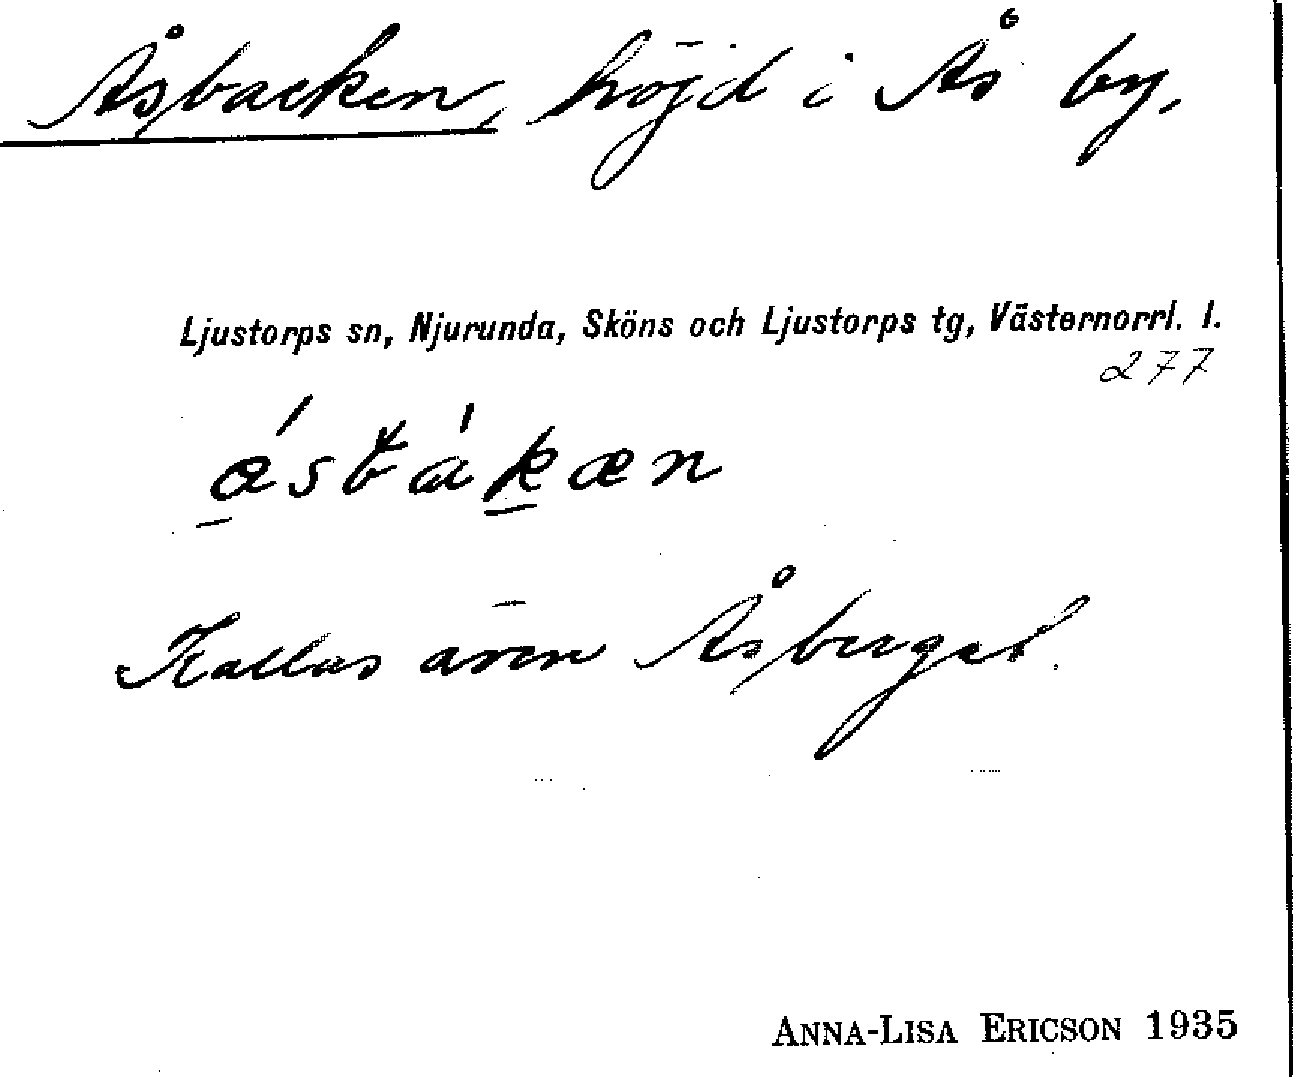 Åsbacken, höjd i Ås by.
Ljustorps sn, Njurunda, Sköns och Ljustorps tg, Västernorrl. l.
277
Kallas även Åsberget.
ANNA-LISA ERICSON 1935